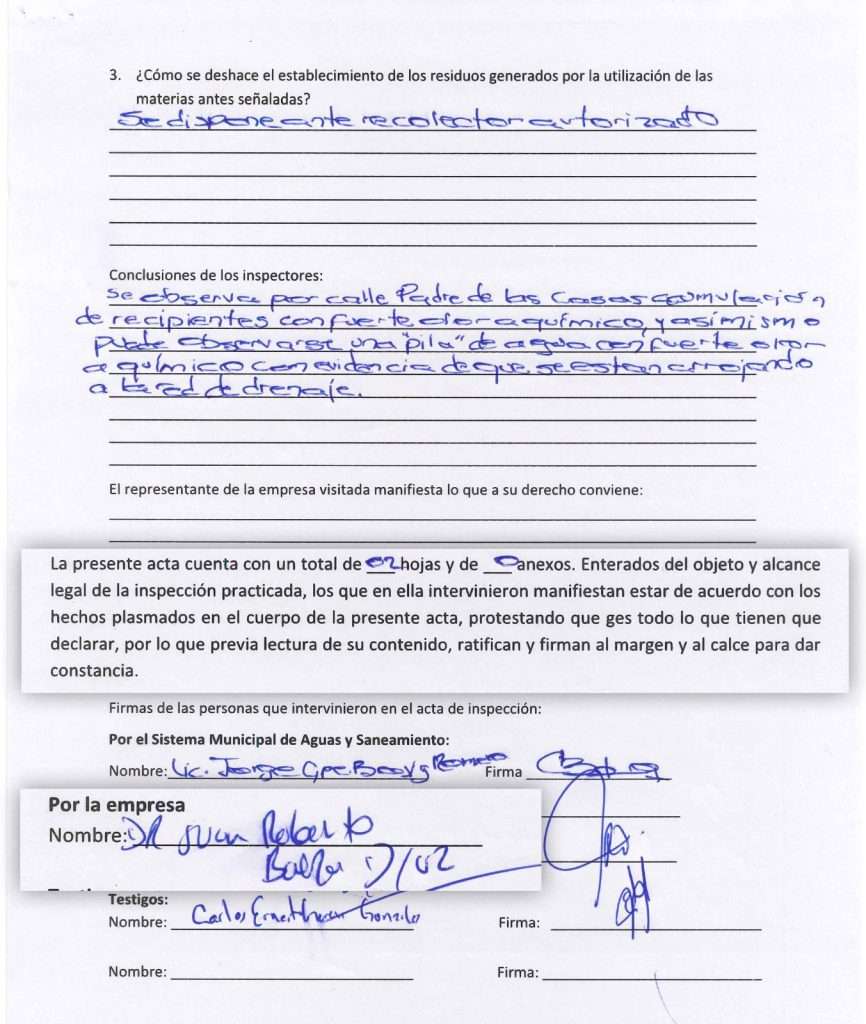 3. ¿Cómo se deshace el establecimiento de los residuos generados por la utilización de las
materias antes señaladas?
Se dispone ante recolector autorizado
Conclusiones de los inspectores:
Se observa por calle Padre de las Casas acumulación
de recipientes con fuerte olor a químico, y asímismo
puede observarse una "pila" de agua con fuerte olor
a químico con evidencia de que se estan arrojando
a la red de drenaje.
El representante de la empresa visitada manifiesta lo que a su derecho conviene:
La presente acta cuenta con un total de 02 hojas y de 0 anexos. Enterados del objeto y alcance
legal de la inspección practicada, los que en ella intervinieron manifiestan estar de acuerdo con los
hechos plasmados en el cuerpo de la presente acta, protestando que ges todo lo que tienen que
declarar, por lo que previa lectura de su contenido, ratifican y firman al margen y al calce para dar
constancia.
Firmas de las personas que intervinieron en el acta de inspección:
Por el Sistema Municipal de Aguas y Saneamiento:
Nombre: Lic. Jorge Gpe. Romero Firma
Por la empresa
Nombre: DR Juan Roberto
Testigos:
Nombre: Carlos González Firma:
Nombre: Firma: